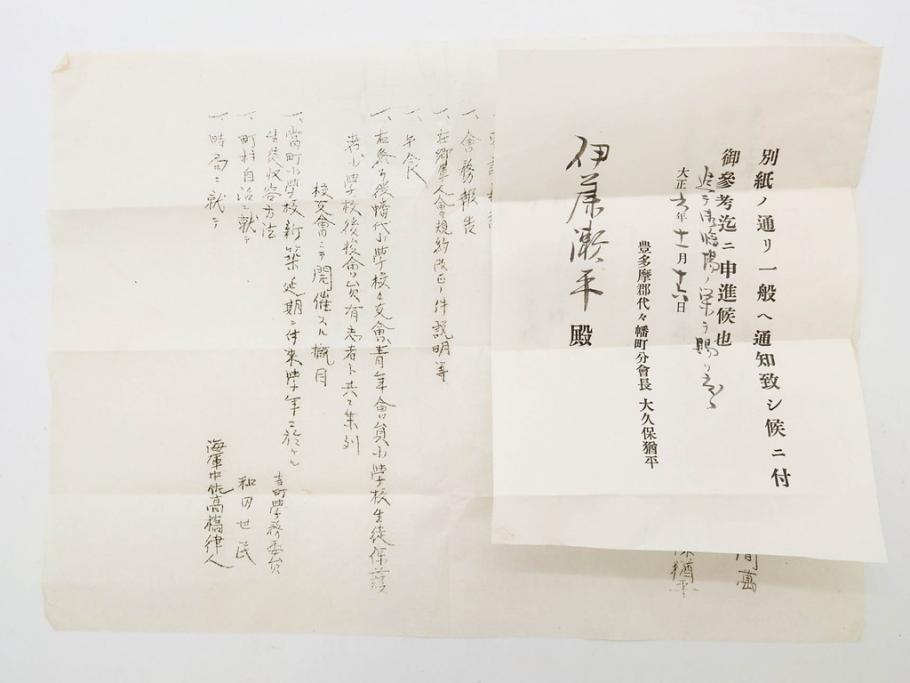 別紙ノ通リ一般ヘ通知致シ候ニ付
御參考迄ニ申進候也
追テ御臨場ノ榮ヲ賜リ度
大正六年十一月十六日
豊多摩郡代々幡町分會長 大久保猶平
伊藤瀬平殿
間萬
保猶平
一、會務報告
一、在郷軍人會規約改正ノ件説明等
一、午食
一、右終テ後幡代小學校々友會、青年會員小學校生徒保護
者、小學校後援會員有志者ト共ニ集列
校友會ニテ開催スル概目
一、當町小學校新築延期ニ付來學年ニ於ケル
生徒收容方法
當町學務委員
和田世民
一、町村自治ニ就テ
一、時局ニ就テ
海軍中佐高橋律人